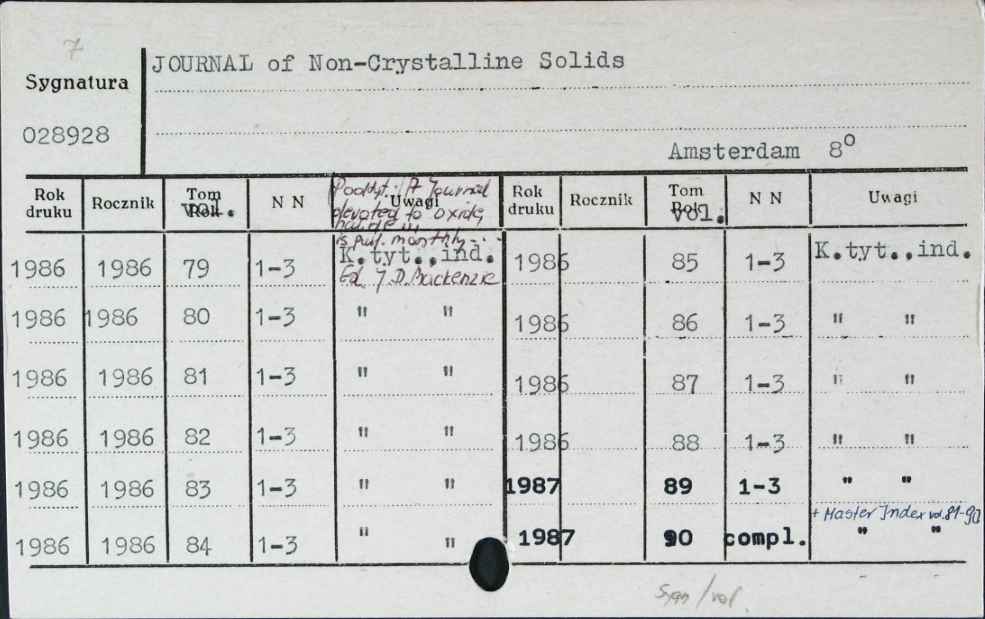 7
JOURNAL of Non-Crystalline Solids
Sygnatura
028928
Amsterdam 8⁰
Rok druku Rocznik Tom Vol. N N Uwagi Rok druku Rocznik Tom Vol. N N Uwagi
Podtyt.: A Journal
devoted to oxide,
halide
is pub. monthly...
1986 1986 79 1-3 K.tyt.,ind. 1986 85 1-3 K.tyt.,ind.
Ed. J.D. Mackenzie
1986 1986 80 1-3 " " 1986 86 1-3 " "
1986 1986 81 1-3 " " 1986 87 1-3 " "
1986 1986 82 1-3 " " 1986 88 1-3 " "
1986 1986 83 1-3 " " 1987 89 1-3 " "
+ Master Index vol. 81-90
1986 1986 84 1-3 " " 1987 90 compl. " "